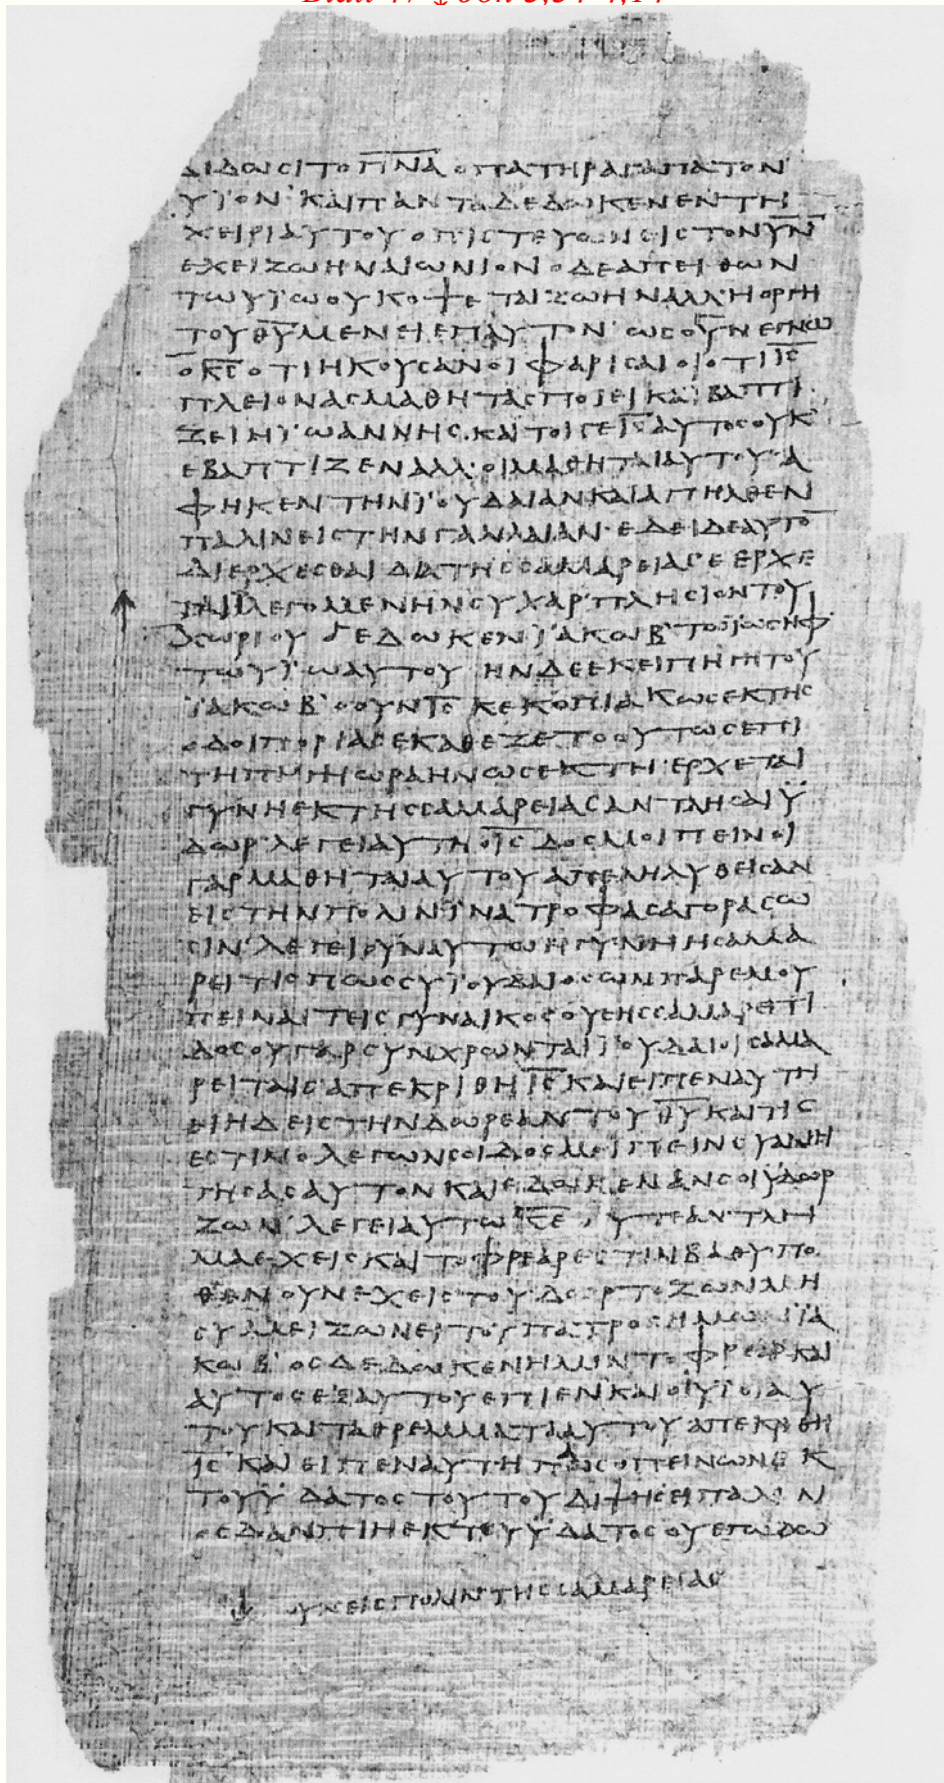 Blatt 47 ↓ Joh 3,34-4,14
ΔΙΔΩϹΙΤΟΠΝΑΟΠΑΤΗΡΑΓΑΠΑΤΟΝ
ΥΪΟΝ ΚΑΙΠΑΝΤΑΔΕΔΩΚΕΝΕΝΤΗ
ΧΕΙΡΙΑΥΤΟΥΟΠΙϹΤΕΥΩΝΕΙϹΤΟΝΥΝ
ΕΧΕΙΖΩΗΝΑΙΩΝΙΟΝΟΔΕΑΠΕΙΘΩΝ
ΤΩΥΪΩΟΥΚΟΨΕΤΑΙΖΩΗΝΑΛΛΗΟΡΓΗ
ΤΟΥΘΥΜΕΝΕΙΕΠΑΥΤΟΝ ΩϹΟΥΝΕΓΝΩ
ΟΚϹΟΤΙΗΚΟΥϹΑΝΟΙΦΑΡΙϹΑΙΟΙΟΤΙΙϹ
ΠΛΕΙΟΝΑϹΜΑΘΗΤΑϹΠΟΙΕΙΚΑΙΒΑΠΤΙ
ΖΕΙΗΪΩΑΝΝΗϹ ΚΑΙΤΟΙΓΕΙϹΑΥΤΟϹΟΥΚ
ΕΒΑΠΤΙΖΕΝΑΛΛΟΙΜΑΘΗΤΑΙΑΥΤΟΥ Α
ΦΗΚΕΝΤΗΝΪΟΥΔΑΙΑΝΚΑΙΑΠΗΛΘΕΝ
ΠΑΛΙΝΕΙϹΤΗΝΓΑΛΙΛΑΙΑΝ ΕΔΕΙΔΕΑΥΤΟ
ΔΙΕΡΧΕϹΘΑΙΔΙΑΤΗϹϹΑΜΑΡΕΙΑϹ ΕΡΧΕ
ΛΕΓΟΜΕΝΗΝϹΥΧΑΡ ΠΛΗϹΙΟΝΤΟΥ
ΧΩΡΙΟΥ ΕΔΩΚΕΝΪΑΚΩΒ ΤΩΪΩϹΗΦ
ΤΩΥΪΩΑΥΤΟΥ ΗΝΔΕΕΚΕΙΠΗΓΗΤΟΥ
ΪΑΚΩΒ ΟΟΥΝΙϹ ΚΕΚΟΠΙΑΚΩϹΕΚΤΗϹ
ΟΔΟΙΠΟΡΙΑϹΕΚΑΘΕΖΕΤΟΟΥΤΩϹΕΠΙ
ΤΗΠΗΓΗΩΡΑΗΝΩϹΕΚΤΗ ΕΡΧΕΤΑΙ
ΓΥΝΗΕΚΤΗϹϹΑΜΑΡΕΙΑϹΑΝΤΛΗϹΑΙΫ
ΔΩΡ ΛΕΓΕΙΑΥΤΗΟΙϹ ΔΟϹΜΟΙΠΕΙΝΟΙ
ΓΑΡΜΑΘΗΤΑΙΑΥΤΟΥΑΠΕΛΗΛΥΘΕΙϹΑΝ
ΕΙϹΤΗΝΠΟΛΙΝΪΝΑΤΡΟΦΑϹΑΓΟΡΑϹΩ
ϹΙΝ ΛΕΓΕΙΟΥΝΑΥΤΩΗΓΥΝΗΗϹΑΜΑ
ΡΕΙΤΙϹΠΩϹϹΥΪΟΥΔΑΙΟϹΩΝΠΑΡΕΜΟΥ
ΠΕΙΝΑΙΤΕΙϹΓΥΝΑΙΚΟϹΟΥϹΗϹϹΑΜΑΡΕΙΤΙ
ΔΟϹΟΥΓΑΡϹΥΝΧΡΩΝΤΑΙΪΟΥΔΑΙΟΙϹΑΜΑ
ΡΕΙΤΑΙϹ ΑΠΕΚΡΙΘΗΙϹΚΑΙΕΙΠΕΝΑΥΤΗ
ΕΙΗΔΕΙϹΤΗΝΔΩΡΕΑΝΤΟΥΘΥΚΑΙΤΙϹ
ΕϹΤΙΝΟΛΕΓΩΝϹΟΙΔΟϹΜΟΙΠΕΙΝϹΥΑΝΗ
ΤΗϹΑϹΑΥΤΟΝΚΑΙΕΔΩΚΕΝΑΝϹΟΙΫΔΩΡ
ΖΩΝ ΛΕΓΕΙΑΥΤΩ ΚΕ ΟΥΤΕΑΝΤΛΗ
ΜΑΕΧΕΙϹΚΑΙΤΟΦΡΕΑΡΕϹΤΙΝΒΑΘΥΠΟ
ΘΕΝΟΥΝΕΧΕΙϹΤΟΥΔΩΡΤΟΖΩΝΜΗ
ϹΥΜΕΙΖΩΝΕΙΤΟΥΠΑΤΡΟϹΗΜΩΝΪΑ
ΚΩΒ ΟϹΔΕΔΩΚΕΝΗΜΙΝΤΟΦΡΕΑΡΚΑΙ
ΑΥΤΟϹΕΞΑΥΤΟΥΕΠΙΕΝΚΑΙΟΙΥΪΟΙΑΥ
ΤΟΥΚΑΙΤΑΘΡΕΜΜΑΤΑΑΥΤΟΥ ΑΠΕΚΡΙΘΗ
ΙϹ ΚΑΙΕΙΠΕΝΑΥΤΗΠΑϹΟΠΕΙΝΩΝΕΚ
ΤΟΥΫΔΑΤΟϹΤΟΥΤΟΥΔΙΨΗϹΕΙΠΑΛΙΝ
ΟϹΔΑΝΠΙΗΕΚΤΟΥΫΔΑΤΟϹΟΥΕΓΩΔΩ
ΟΥΝΕΙϹΠΟΛΙΝΤΗϹϹΑΜΑΡΕΙΑϹ